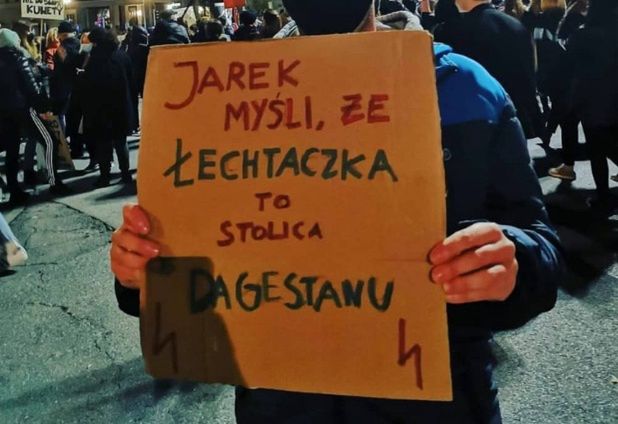 KUWETY
JAREK
MYŚLI, ŻE
ŁECHTACZKA
TO
STOLICA
DAGESTANU